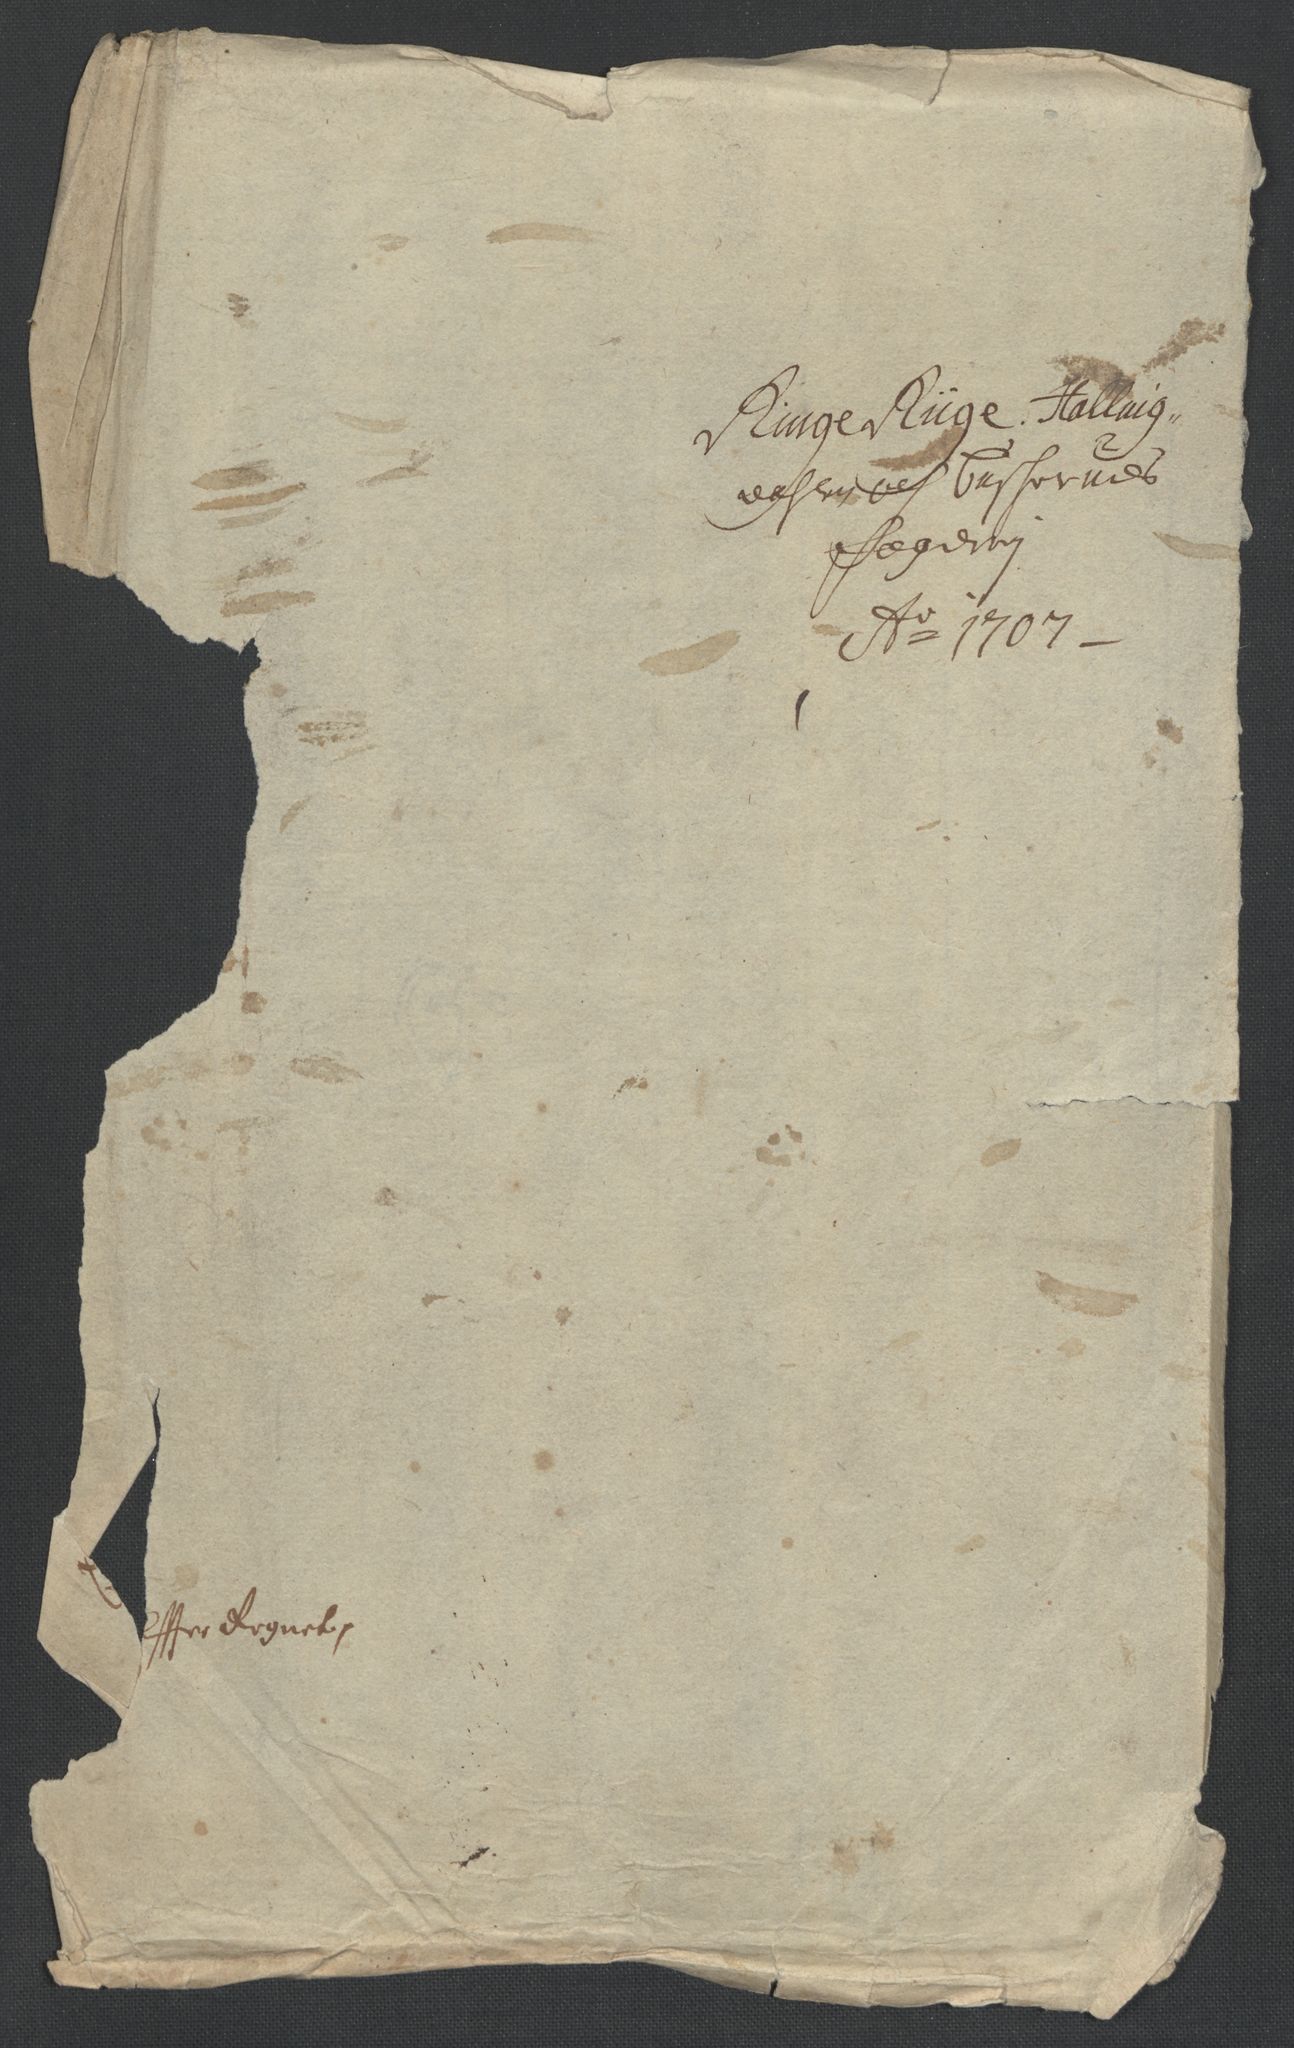 Ringe Riige. Halling„
dahls och Busherudes
fogderij
Ao 1707 –
Effter Regnet